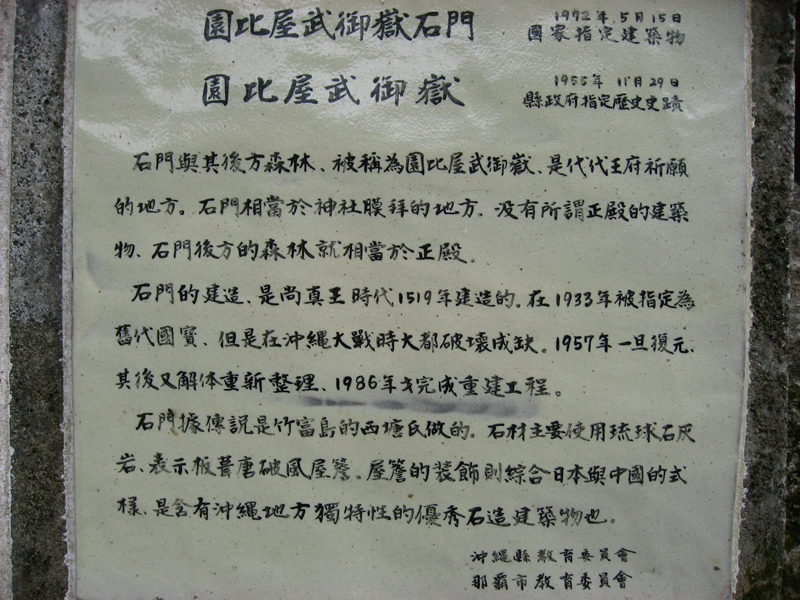 園比屋武御嶽石門
1972年5月15日
國家指定建築物
園比屋武御嶽
1955年11月29日
縣政府指定歷史史蹟
石門與其後方森林、被稱為園比屋武御嶽、是代代王府祈願
的地方。石門相當於神社膜拜的地方.没有所謂正殿的建築
物、石門後方的森林就相當於正殿。
石門的建造、是尚真王時代1519年建造的.在1933年被指定為
舊代國寶、但是在沖繩大戰時大都破壞成缺。1957年一旦復元、
其後又解体重新整理、1986年才完成重建工程。
石門據傳説是竹富島的西塘氏做的.石材主要使用琉球石灰
岩、表示板葺唐破風屋簷。屋簷的裝飾則綜合日本與中國的式
樣、是含有沖繩地方獨特性的優秀石造建築物也。
沖繩縣教育委員會
那覇市教育委員會